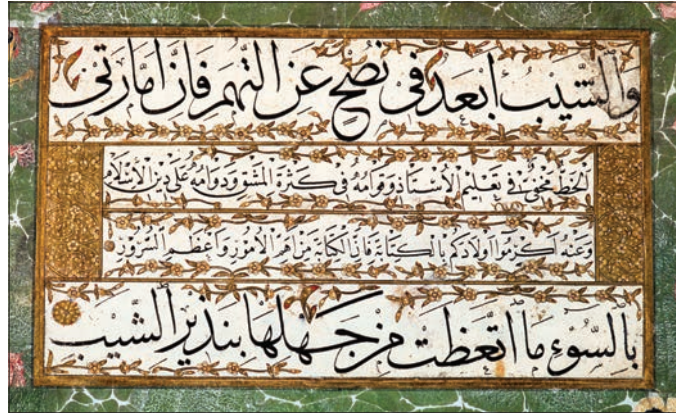 وَالشَّيْبُ اَبْعَدُ فِى نُصْحٍ عَنِ التُّهَمِ فَاِنَّ اَمَّارَتِى
الخَطُّ مَخْفِىٌّ فِى تَعْلِيمِ الْاُسْتَاذِ وَقِوَامُهُ فِى كَثْرَةِ الْمَشْقِ وَدَوَامُهُ عَلَى دِينِ الْاِسْلَامِ
وَعَنْهُ اَكْرِمُوا اَوْلَادَكُمْ بِالْكِتَابَةِ فَاِنَّ الْكِتَابَةَ مِنْ اَهَمِّ الْاُمُورِ وَاَعْظَمِ السُّرُورِ
بِالسُّوْءِ مَا اتَّعَظَتْ مِنْ جَهْلِهَا بِنَذِيرِ الشَّيْبِ